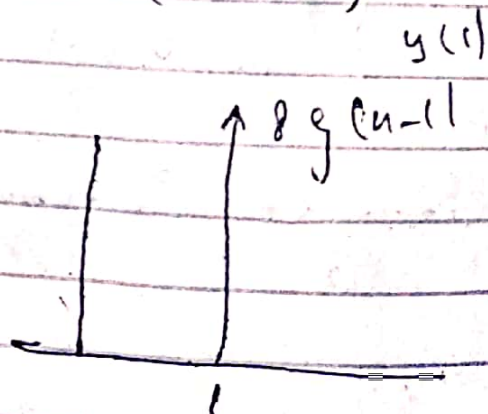 y(1)
8 g(n-1)
1